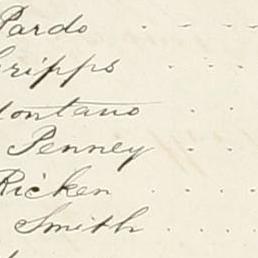 Pardo
Cripps
Montano
Penney
Ricken
Smith